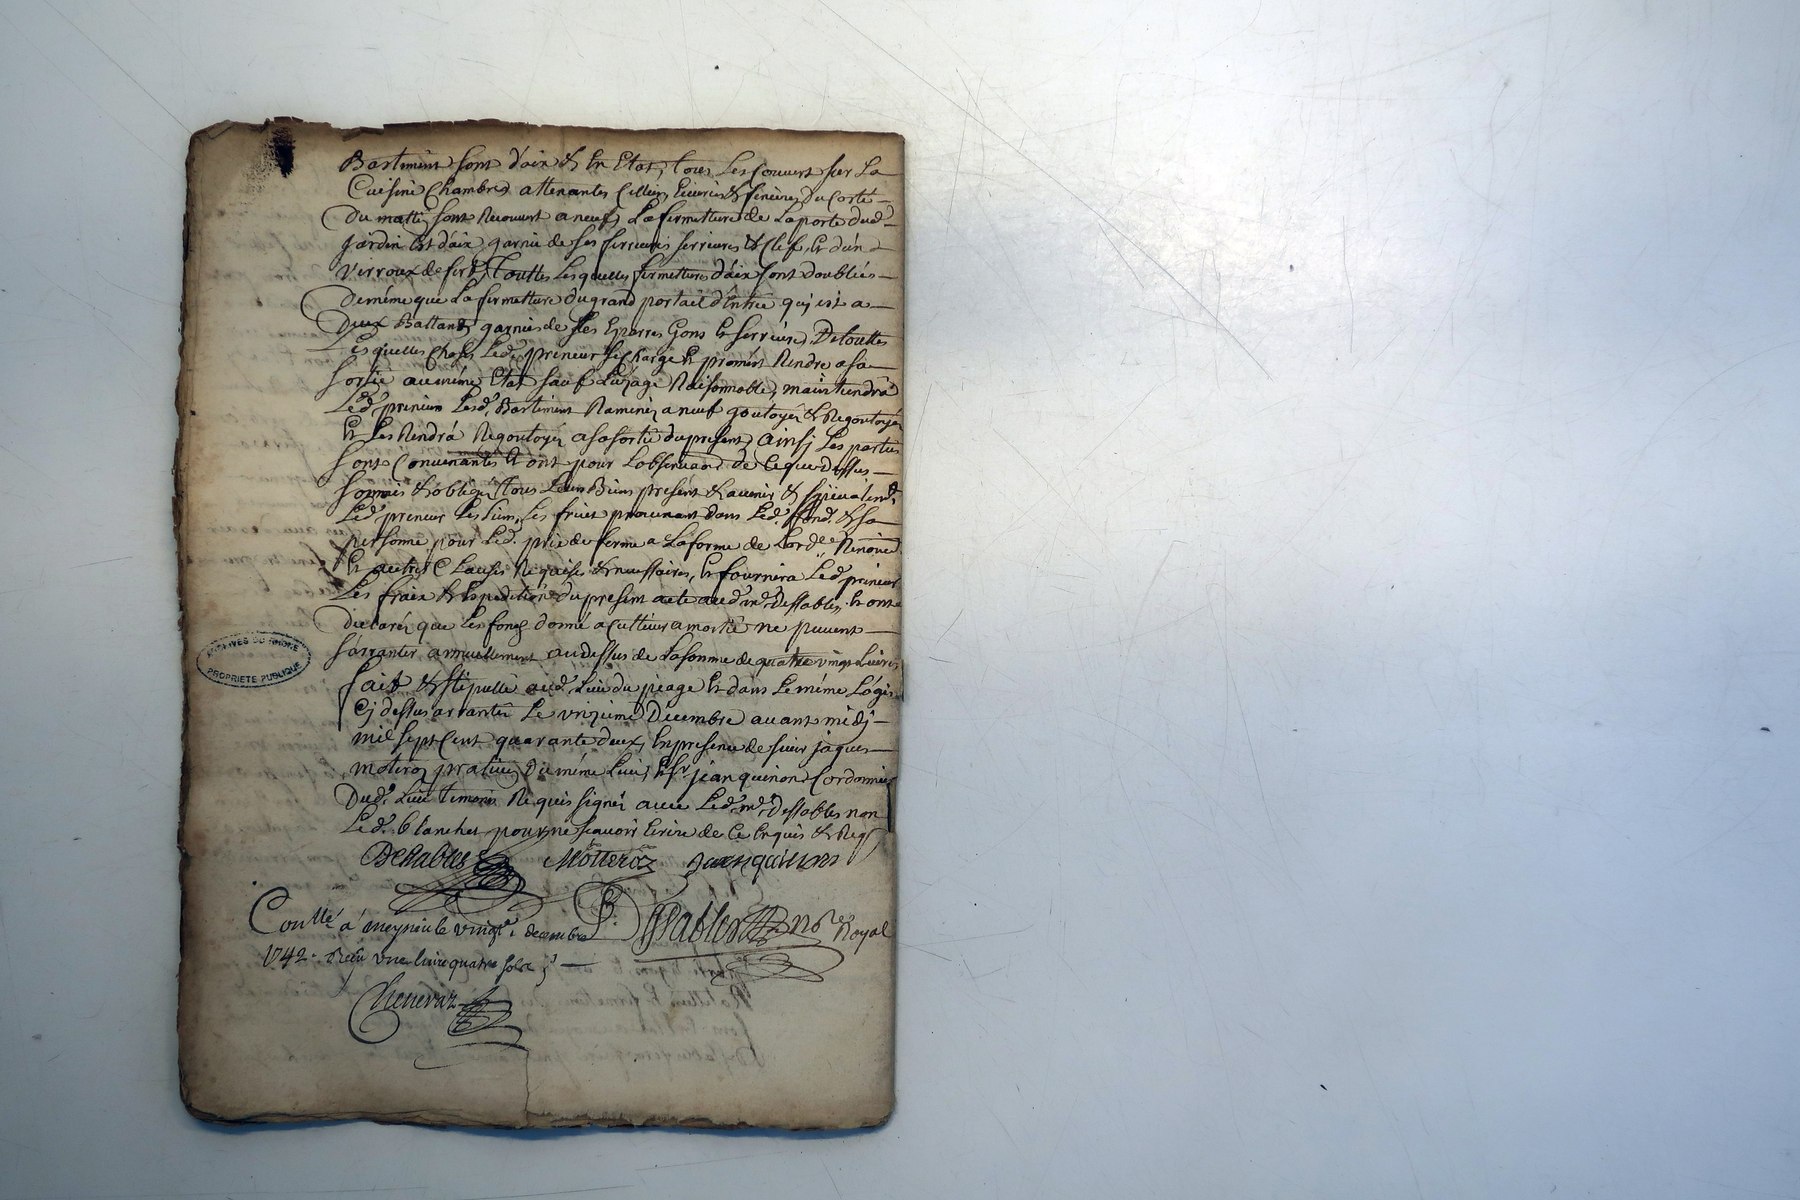 Bastiment sont d'aix & en Etat, tous Les Couvert sur La
Cuisine Chambres attenantes Cellier, Ecuries & feniere, du Corté
Du matin sont Recouvert a neuf, La fermetture de La porte dud.
Jardin Est d'aix garnie de ses ferrures serrures & Clef, Et d'un
Verroux de fer, Touttes Lesquelles fermettures d'aix sont doublées
De méme que La fermetture du grand portail d'Entrée qui est a
Deux Battans garnies de ses Eparres Gons Et serrures, De touttes
Lesquelles Choses Led. preneur se Charge Et promest Rendre a sa
sortie au méme Etat sauf L'uzage Raisonnable, maintiendra
Led. preneur Lesd. Bastiment Ramenez a neuf goutoyer & Regoutoyer
Et Les Rendrá Regoutoyer a sa sortie du present, ainsj Les parties
sont Convenantes Et ont pour L'observance de Ce que dessus
soumis & obligé Tous Leurs Biens present & avenir & specialemt
Led. preneur Les siens, Les fruit provenant dans Led. fond. & sa
personne pour Led. prix de ferme a La forme de L'ordce
Et autres Clauses Requises & necessaires, Et fournira Led. preneur
Les fraix & Expedition du present acte aud. Dessables. Et ont
declaré que Les fonds donné a Culture a moitié ne peuvent
s'arranter annuellement au dessus de La somme de quatre vingt Livres
fait & stipullé aud. Lieu du péage Et dans Le méme Logis
Cj dessus arranté Le onzieme Décembre avant midj
mil sept Cent quarante deux, En presence de sieur jaques
moteroz praticien Du méme Lieu, & sr jean quinon Cordonnier
Dud. Lieu temoin Requis signés avec Led. Dessables non
Led. blanchet pour ne scavoir Ecrire de Ce Enquis & Req.
Desables Mötteröz Jean quinon
Conllé á meyzieu le vingt decembre
Dessables nore Royal
1742. Reçu une livre quatre sols
Cheneraz
ARCHIVES DU RHONE
PROPRIETE PUBLIQUE